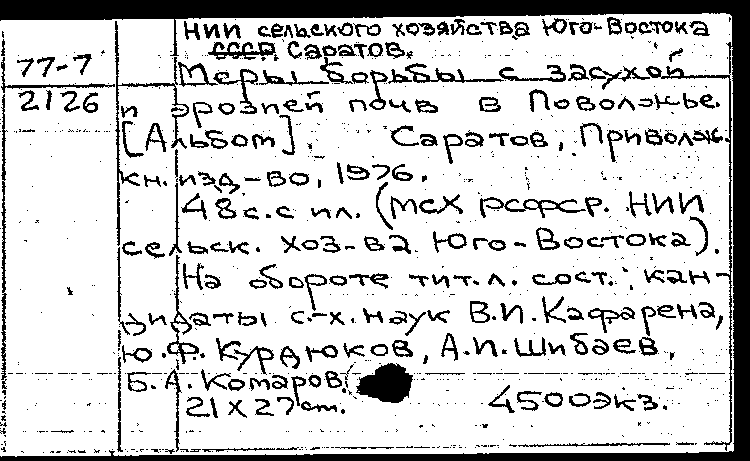 НИИ сельского хозяйства Юго-Востока
СССР, Саратов.
77-7
Меры борьбы с засухой
2126
и эрозией почв в Поволжье.
[Альбом]. Саратов, Приволж.
кн. изд-во, 1976.
48 с. с ил. (МСХ РСФСР. НИИ
сельск. хоз-ва Юго-Востока).
На обороте тит. л. сост.: кан-
дидаты с.-х. наук В.И. Кафарена,
Ю.Ф. Курдюков, А.И. Шибаев,
Б.А. Комаров.
21 X 27 cm. 4500 экз.